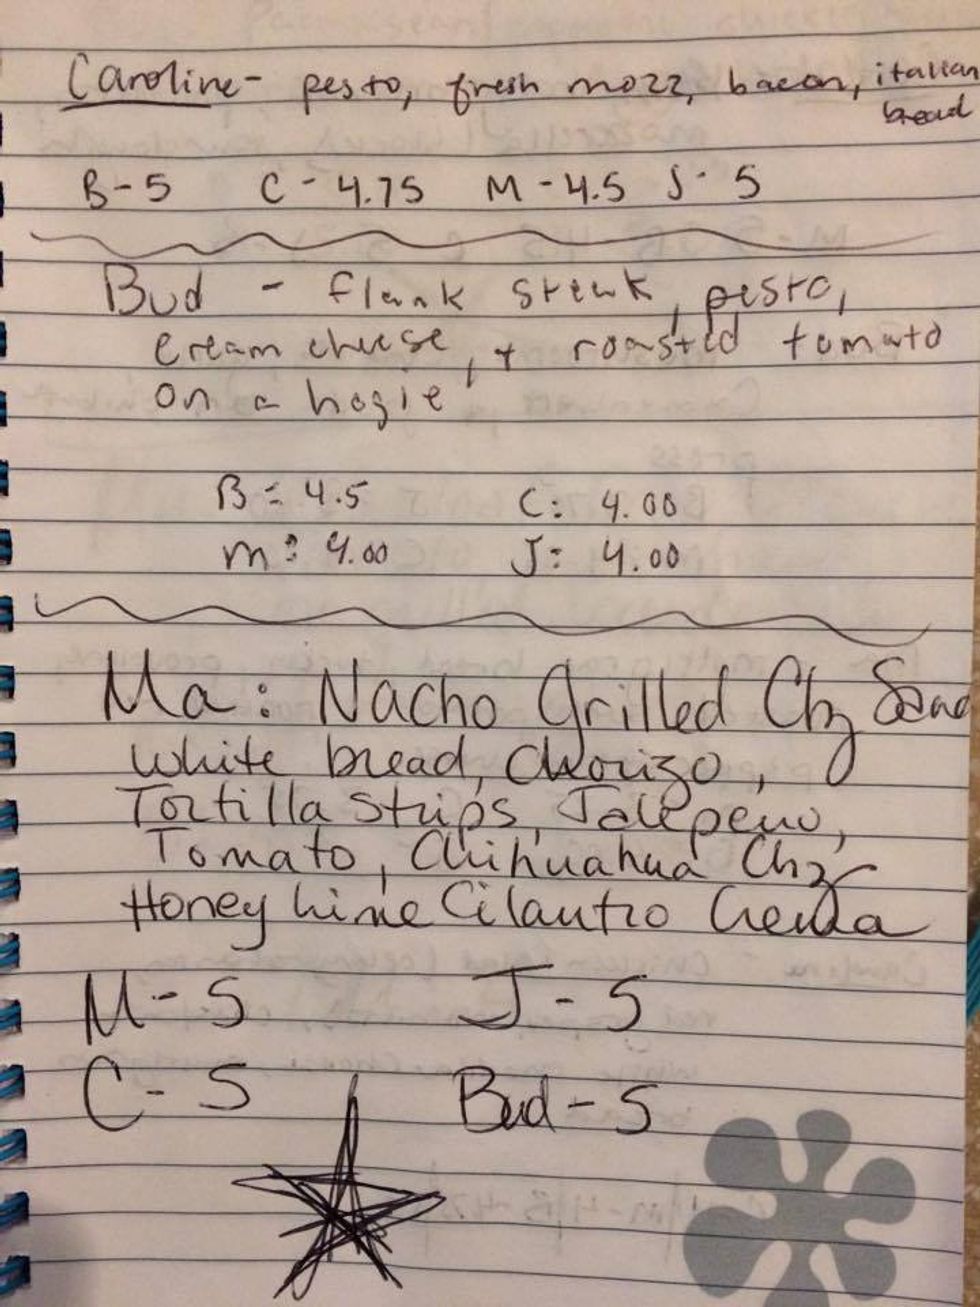 Caroline- pesto, fresh mozz, bacon, italian
bread
B-5 C-4.75 M-4.5 J-5
Bud - flank steak, pesto,
cream cheese, + roasted tomato
on a hogie
B = 4.5 C: 4.00
m: 4.00 J: 4.00
Ma: Nacho Grilled Chz Sand
White bread, Chorizo,
Tortilla strips, Jalepeno,
Tomato, Chihuahua Chz
Honey Lime Cilantro Crema
M-5 J-5
C-5 Bud-5